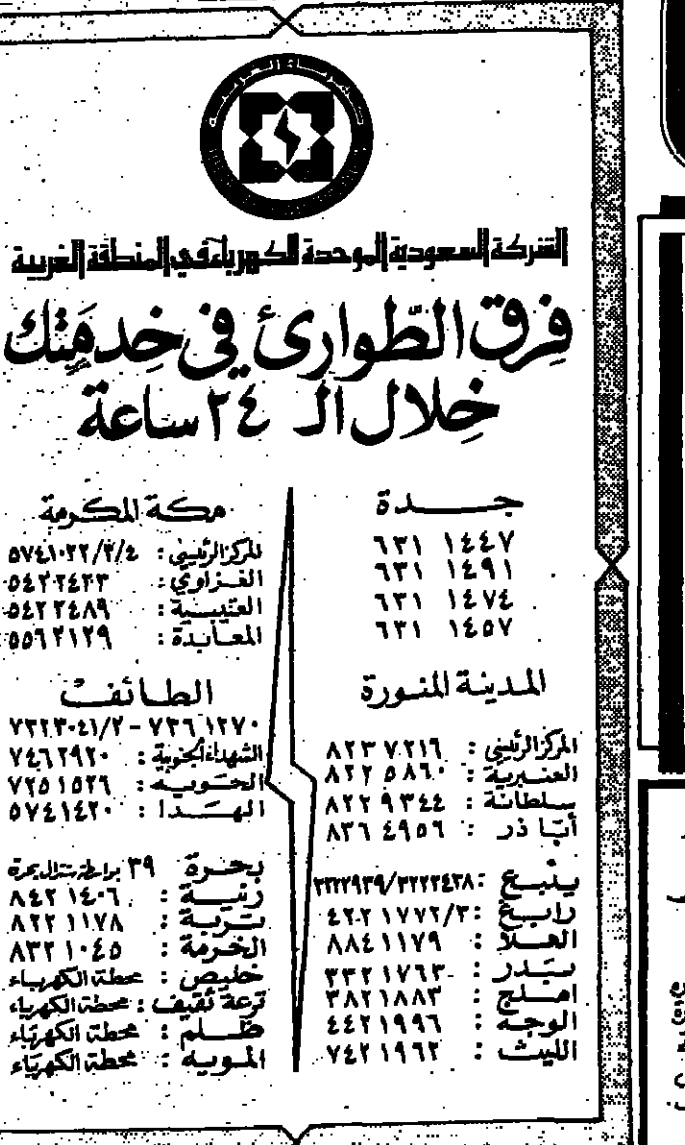 الشركة السعودية الموحدة للكهرباء في المنطقة الغربية
فِرق الطّوارئ في خِدمَتِك
خِلال الـ ٢٤ ساعة
جــدة
٦٣١ ١٤٤٧
٦٣١ ١٤٩١
٦٣١ ١٤٧٤
٦٣١ ١٤٥٧
المدينة المنورة
المركز الرئيسي : ٨٢٣ ٧٢١٦
العنبرية : ٨٢٢ ٥٨٦٠
سلطانة : ٨٢٢ ٩٣٤٤
أبا ذر : ٨٣٦ ٤٩٥٦
ينبع : ٣٢٢٢٩٣٩/٣٢٢٢٤٣٨
رابغ : ٤٢٢ ١٧٧٢/٣
العلا : ٨٨٤ ١١٧٩
بدر : ٣٣٢ ١٧٦٣
املج : ٣٨٢ ١٨٨٣
الوجه : ٤٤٢ ١٩٩٦
الليث : ٧٤٢ ١٩٦٢
مكة المكرمة
المركز الرئيسي : ٥٧٤١٠٢٢/٣/٤
الغزاوي : ٥٤٢٢٤٢٣
العتيبية : ٥٤٢٢٤٨٩
المعابدة : ٥٥٦٢١٢٩
الطائف
٧٣٦ ١٢٧٠ - ٧٣٢٣٠٤١/٢
الشهداء الجنوبية : ٧٤٦٢٩٢٠
الحوية : ٧٢٥ ١٥٢٦
الهدا : ٥٧٤١٤٢٠
بحرة ٣٩ بواسطة سنترال بحرة
رنية : ٨٤٢ ١٤٠٦
تربة : ٨٢٢ ١١٧٨
الخرمة : ٨٣٢ ١٠٤٥
خليص : محطة الكهرباء
ترعة ثقيف : محطة الكهرباء
ظلم : محطة الكهرباء
المويه : محطة الكهرباء